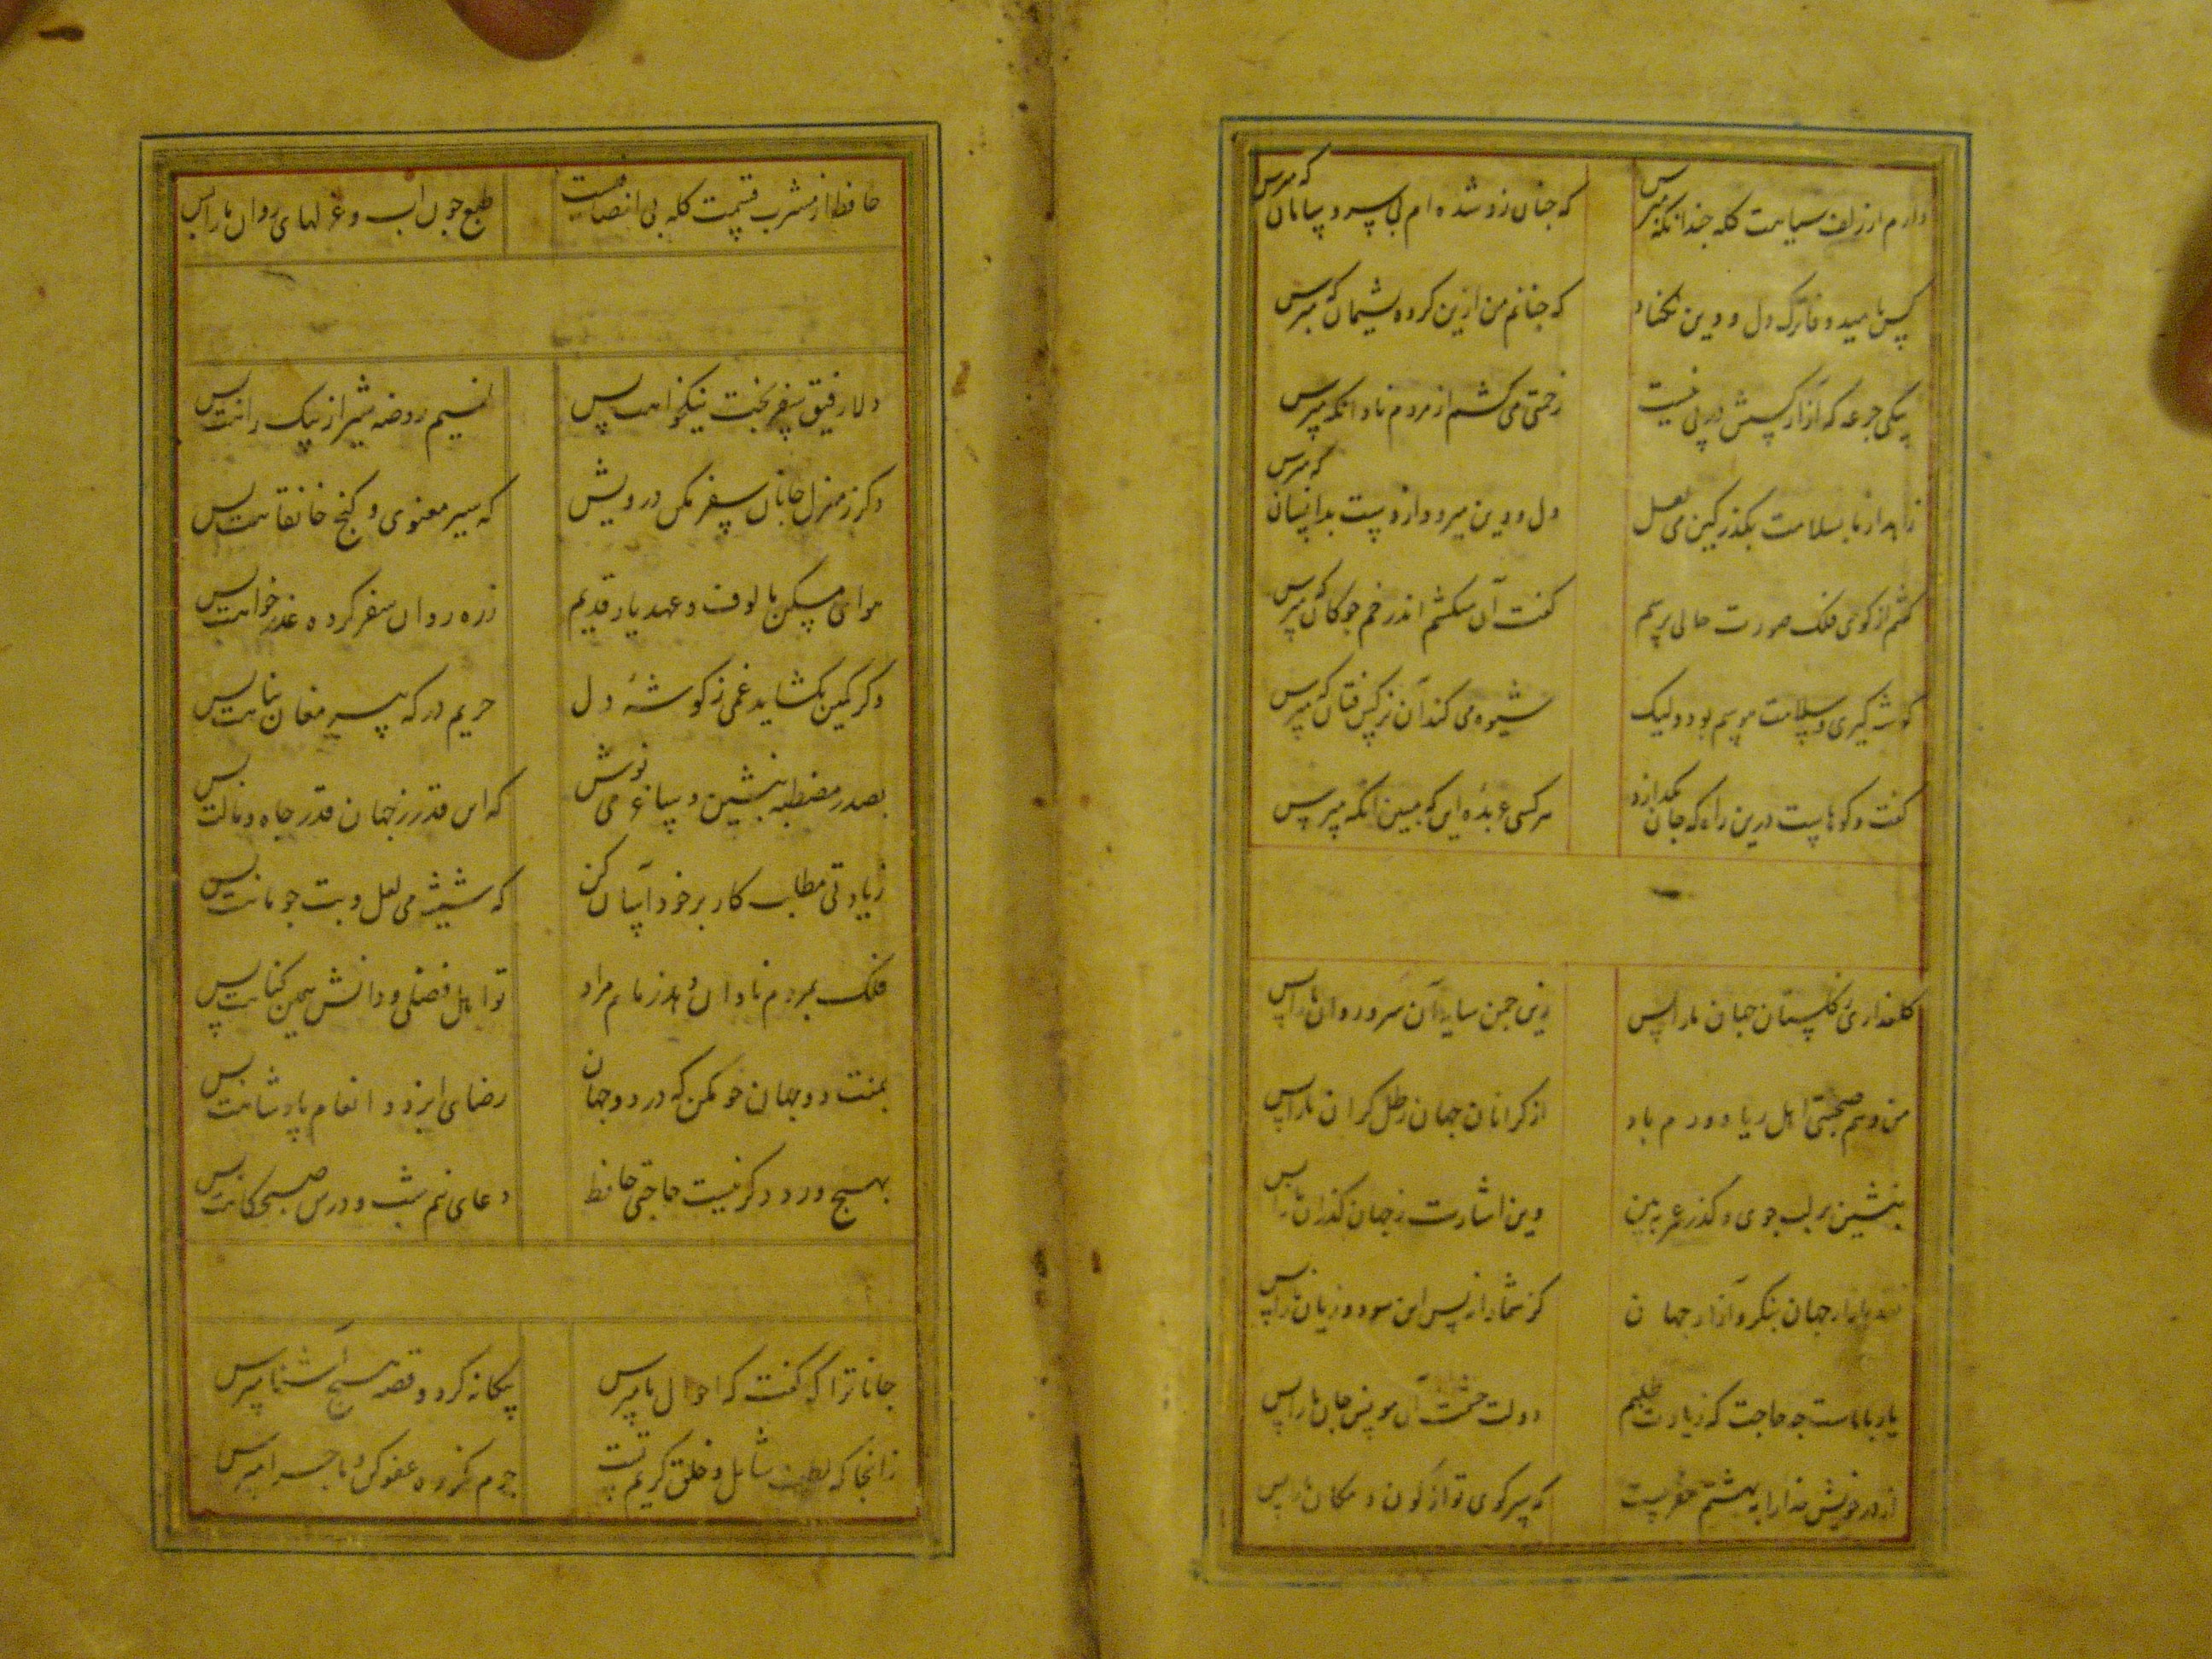 دارم از زلف سیاهت کله چندانکه مپرس که چنان زو شده ام بی سر و سامان که مپرس
کس بامید وفا ترک دل و دین مکناد که چنانم من ازین کرده پشیمان که مپرس
بیکی جرعه که آزار کسش در پی نیست زحمتی می کشم از مردم نادانکه مپرس
زاهد از ما بسلامت بکذر کین می لعل دل و دین میبرد از دست بدانسان که مپرس
کفتم از کوی فلک صورت حالی پرسم کفت آن میکشم اندر خم چوکان که مپرس
کوشه کیری و سلامت هوسم بود ولیک شیوه می کند آن نرکس فتان که مپرس
کفت و کوهاست درین راه که جان بکدازد هر کسی عربده این که مبین انکه مپرس
کلعذاری ز کلستان جهان ما را بس زین چمن سایه آن سرو روان ما را بس
من و هم صحبتی اهل ریا دورم باد از کرانان جهان رطل کران ما را بس
بنشین بر لب جوی و کذر عمر ببین وین اشارت ز جهان کذران ما را بس
نقد بازار جهان بنکر و آزار جهان کر شما را نه بس این سود و زیان ما را بس
یار با ماست چه حاجت که زیادت طلبیم دولت صحبت آن مونس جان ما را بس
از در خویش خدا را به بهشتم مفرست که سر کوی تو از کون و مکان ما را بس
حافظ از مشرب قسمت کله بی انصافیست طبع چون آب و غزلهای روان ما را بس
دلا رفیق سفر بخت نیکخواهت بس نسیم روضه شیراز پیک راهت بس
دکر ز منزل جانان سفر مکن درویش که سیر معنوی و کنج خانقاهت بس
هوای مسکن مالوف و عهد یار قدیم ز ره روان سفر کرده عذرخواهت بس
وکر کمین بکشاید غمی ز کوشهٔ دل حریم درکه پیر مغان پناهت بس
بصدر مصطبه بنشین و ساغر می نوش که این قدر ز جهان قدر جاه و مالت بس
زیادتی مطلب کار بر خود آسان کن که شیشه می لعل و بت چو ماهت بس
فلک بمردم نادان دهد زمام مراد تو اهل فضلی و دانش همین کناهت بس
بمنت دو جهان خو مکن که در دو جهان رضای ایزد و انعام پادشاهت بس
بهیچ ورد دکر نیست حاجتی حافظ دعای نیم شب و درس صبحکاهت بس
جانا ترا که کفت که احوال ما مپرس بیکانه کرد و قصه هیچ آشنا مپرس
زانجا که لطف شامل و خلق کریم تست جرم نکرده عفو کن و ماجرا مپرس